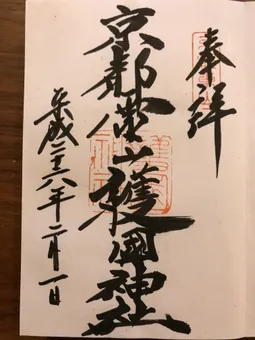 奉拝
京都霊山護國神社
平成二十六年二月一日